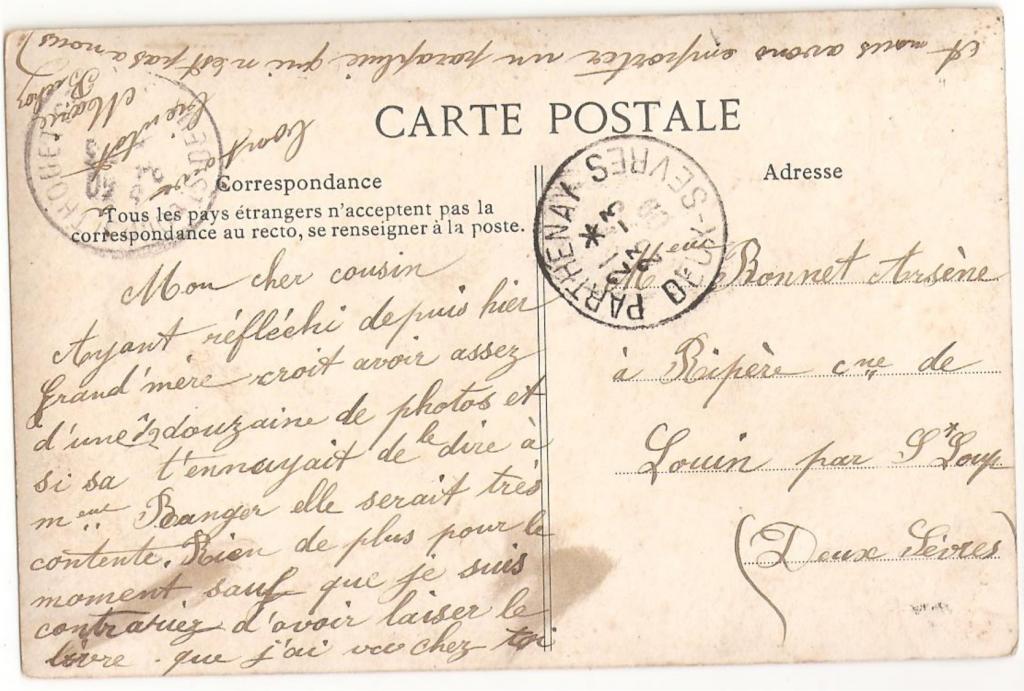 CARTE POSTALE
Correspondance
Tous les pays étrangers n'acceptent pas la
correspondance au recto, se renseigner à la poste.
Mon cher cousin
Ayant réfléchi depuis hier
Grand'mère croit avoir assez
d'une 1/2 douzaine de photos et
si sa t'ennuyait de le dire à
meme Banger elle serait très
contente. Rien de plus pour le
moment sauf que je suis
contrariez d'avoir laiser le
livre que j'ai vu chez toi
et nous avons emporter un parapluie qui n'est pas a nous
bientot
Marie
Adresse
PARTHENAY
DEUX-SÈVRES
Bonnet Arsène
à Ripère cne de
Louin par St Loup
(Deux Sèvres)